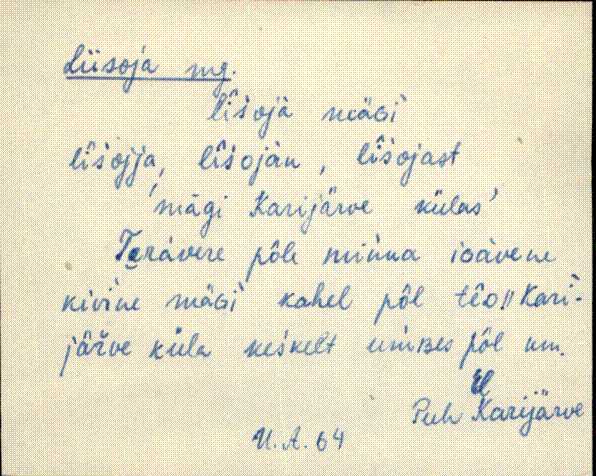 Liisoja mg.
lîsojà mäGi
lîsojja, lîsojàn, lîsojast
'mägi Karijärve külas'
Torávere pôle minna iGävene
kivine mäGi kahel pôl têD // Kari-
järve küla keskelt umBes pôl km.
Puh Karijärve
U. A. 64